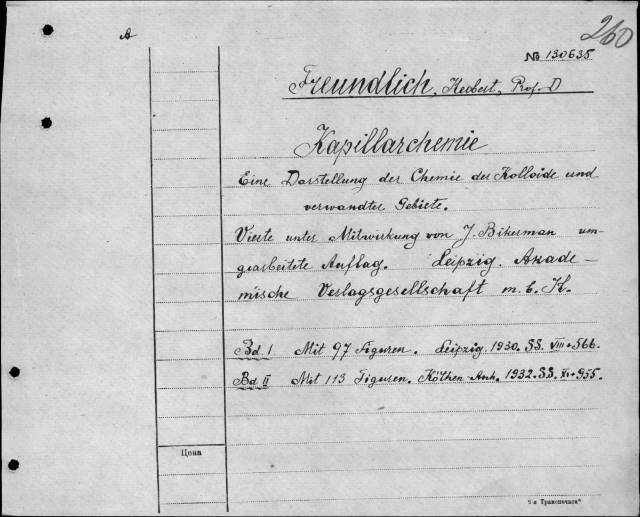 260
A
№ 130635
Freundlich, Herbert, Prof. D
Kapillarchemie
Eine Darstellung der Chemie der Kolloide und
verwandter Gebiete.
Vierte unter Mitwirkung von J. Bikerman um-
gearbeitete Auflag. Leipzig. Akade-
mische Verlagsgesellschaft m. b. K.
Bd I Mit 97 Figuren. Leipzig. 1930. SS. VIII+566.
Bd II Mit 113 Figuren. Köthen-Anh. 1932. SS. XI+955.
Цена